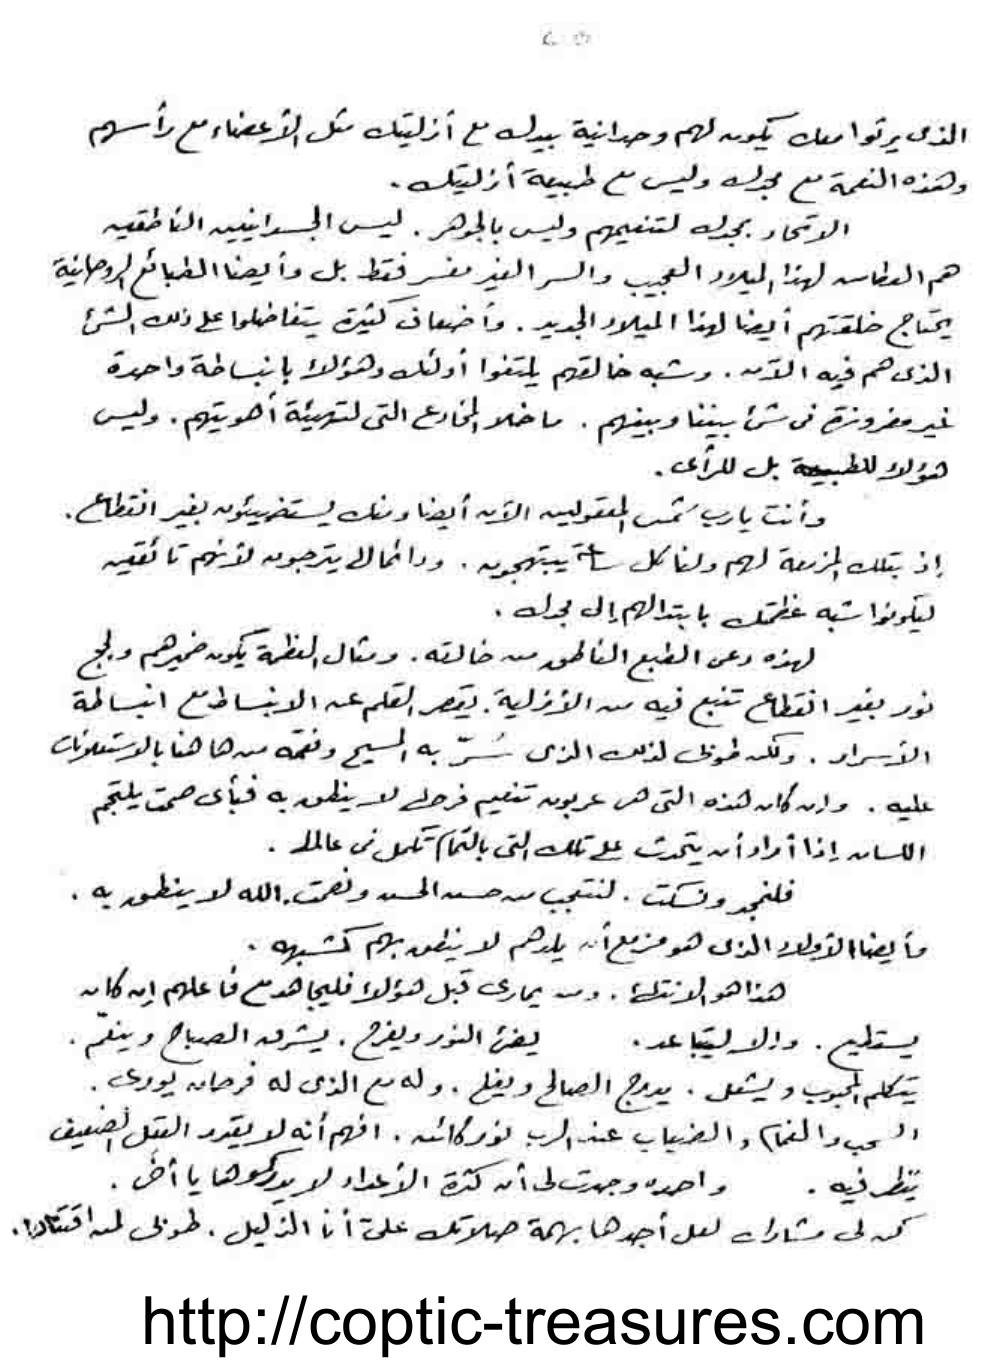 ٢٠٥
الذى يرثوا معك يكون لهم وحدانية بيدك مع أزليتك مثل الأعضاء مع رأسهم
وهذه النعمة مع مجدك وليس مع طبيعة أزليتك .
الاتحاد بمجدك لتنعيمهم وليس بالجوهر . ليس الجسدانيين الناطقين
هم العطاش لهذا الميلاد العجيب والسر الغير مفسر فقط بل وأيضا الطبائع الروحانية
يحتاج خلقتهم أيضا لهذا الميلاد الجديد . وأضعاف كثيرة يتفاضلوا على ذلك الشئ
الذى هم فيه الآن . وشبه خالقهم يلتفوا أولئك وهؤلاء بانبساطة واحدة
غير مفروزة فى شئ بيننا وبينهم . ما خلا المخادع التى لتهيئة أهويتهم . وليس
هؤلاء للطبيعة بل للرأى .
وأنت يارب شمس المعقولين الآن أيضا ومنك يستضيئون بغير انقطاع .
إذ بتلك المزمعة لهم ولنا كل ساعة يبتهجون . ودائما لى يترجون لأنهم تائقين
ليكونوا شبه عظمتك بابتدالهم إلى مجدك .
لهذه دعى الطبع الناطق من خالقه . ومثال العظمة يكون ضميرهم ولجج
نور بغير انقطاع تنبع فيه من الأزلية . يقصر القلم عن الانبساط مع انبساطة
الأسرار . ولكن طوبى لذلك الذى سُرّ به المسيح ونعّمه من ها هنا بالاستعلانات
عليه . وإن كان هذه التى هى عربون تنعيم فرحك لا ينطق به فبأى صمت يلتجم
اللسان إذا أراد أن يتحدث على تلك التى بالتمام تكمل فى عالمك .
فلنمجد ونسكت . لنتعجب من حسن الحسن ونصمت . الله لا ينطق به .
وأيضا الأولاد الذى هو مزمع أن يلدهم لا ينطق بهم كشبهه .
هذا هو الابتداء . ومن يمارى قبل هؤلاء فليجاهد مع فاعلهم إن كان
يستطيع . وإلا ليتباعد . يضئ النور ويفرح . يشرق الصباح وينعّم .
يتكلم المحبوب ويشعل . يمدح الصالح ويفلح . وله مع الذى له فرحان يورى .
السحب والغمام والضباب عند الرب نور كائن . افهم أنه لا يقدر العقل الضعيف
ينظر فيه . واحده وجدت لى أن كثرة الأعداء لا يدركوها يا أخى .
كن لى مشارك لعل أجدها بهمة صلاتك علىّ أنا الذليل . طوبى لمن اقتناها .
http://coptic-treasures.com